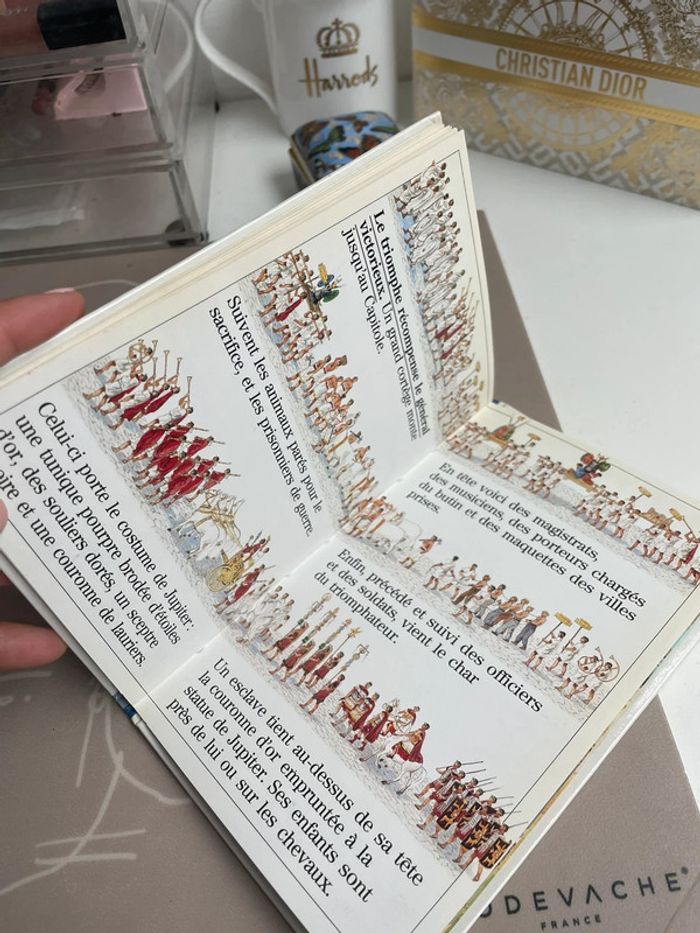 Harrods
CHRISTIAN DIOR
Le triomphe récompense le général
victorieux. Un grand cortège monte
jusqu'au Capitole.
En tête voici des magistrats,
des musiciens, des porteurs chargés
du butin et des maquettes des villes
prises.
Suivent les animaux parés pour le
sacrifice, et les prisonniers de guerre.
Enfin, précédé et suivi des officiers
et des soldats, vient le char
du triomphateur.
Celui-ci porte le costume de Jupiter:
une tunique pourpre brodée d'étoiles
d'or, des souliers dorés, un sceptre
et une couronne de lauriers.
Un esclave tient au-dessus de sa tête
la couronne d'or empruntée à la
statue de Jupiter. Ses enfants sont
près de lui ou sur les chevaux.
UDEVACHE
FRANCE